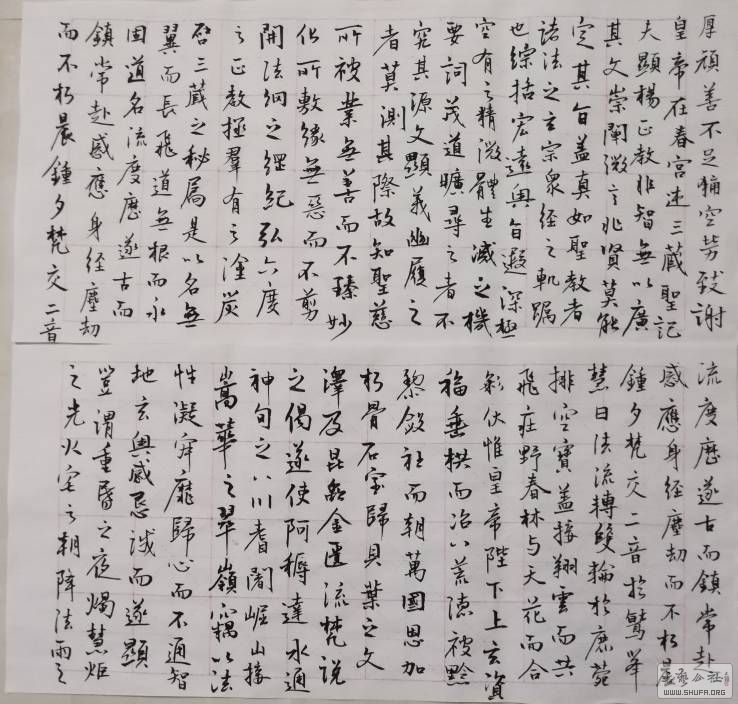 厚頑善不足稱空勞致謝
皇帝在春宮述三藏聖記
夫顯楊正教非智無以廣
其文崇闡微言非賢莫能
定其旨盖真如聖教者
諸法之玄宗衆經之軌躅
也綜括宏遠奧旨遐深極
空有之精微體生滅之機
要詞茂道曠尋之者不
究其源文顯義幽履之
者莫測其際故知聖慈
所被業無善而不臻妙
化所敷緣無惡而不剪
開法網之綱紀弘六度
之正教拯羣有之塗炭
啓三藏之秘扃是以名無
翼而長飛道無根而永
固道名流慶歷遂古而
鎮常赴感應身經塵劫
而不朽晨鍾夕梵交二音
流慶歷遂古而鎮常赴
感應身經塵劫而不朽晨
鍾夕梵交二音於鷲峯
慧日法流轉雙輪於鹿菀
排空寶盖接翔雲而共
飛莊野春林与天花而合
彩伏惟皇帝陛下上玄資
福垂拱而治八荒德被黔
黎斂衽而朝萬國恩加
朽骨石室歸貝葉之文
澤及昆蟲金匱流梵說
之偈遂使阿耨達水通
神甸之八川耆闍崛山接
嵩華之翠嶺竊以法
性凝寂靡歸心而不通智
地玄奧感恳誠而遂顯
豈謂重昏之夜燭慧炬
之光火宅之朝降法雨之
WWW.SHUFA.ORG